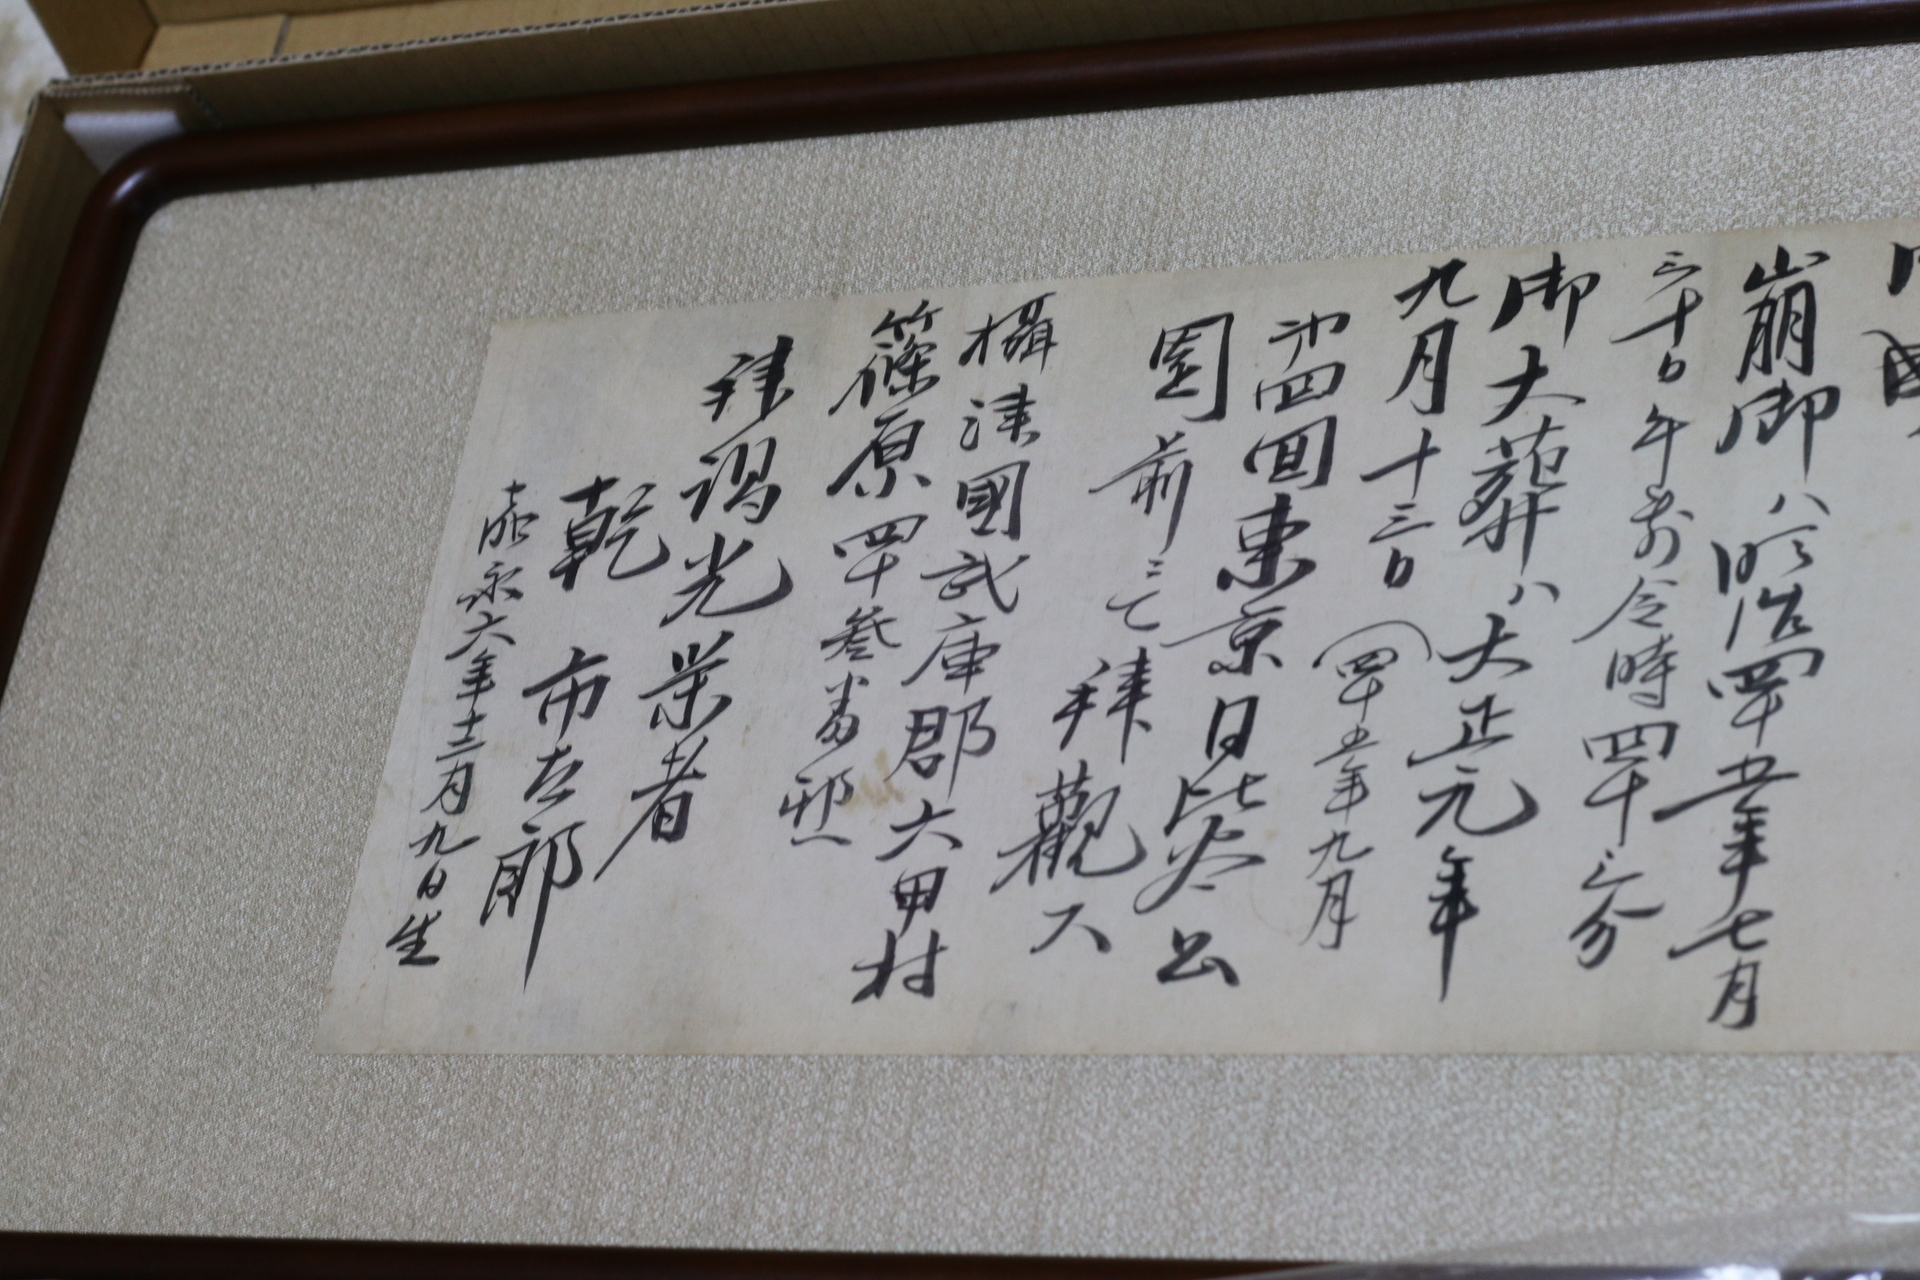 崩御ハ明治四十五年七月
三十日午前令時四十三分
御大葬ハ大正元年
九月十三日(四十五年九月
弟四回東京日比谷公
園前ニて拝観ス
攝津國武庫郡六甲村
篠原四十参番邸
拝謁光栄者
乾市太郎
嘉永六年十二月九日生